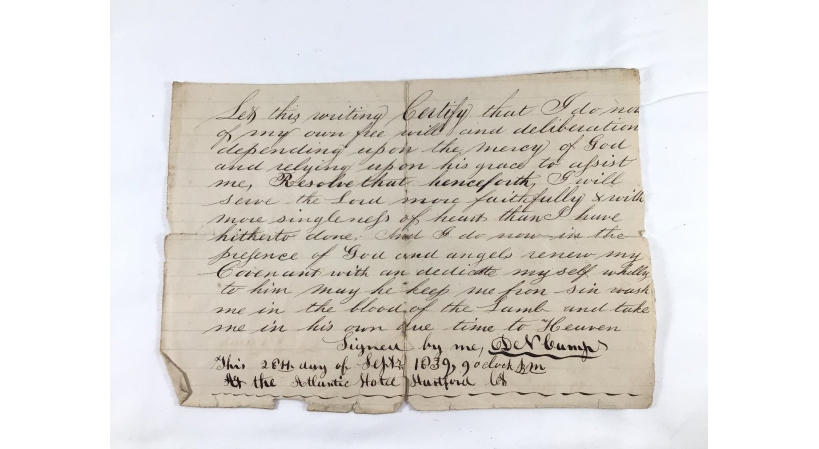 Let this writing Certify that I do now
of my own free will and deliberation
depending upon the mercy of God
and relying upon his grace to assist
me, Resolve that henceforth, I will
serve the Lord more faithfully & with
more singleness of heart than I have
hitherto done. And I do now in the
presence of God and angels renew my
Covenant with an dedicate my self wholly
to him may he keep me fron sin wash
me in the blood of the Lamb and take
me in his own due time to Heaven
Signed by me, D N Camp
This 28th day of Sept, 1839, 9 oclock p.m
At the Atlantic Hotel Hartford Ct